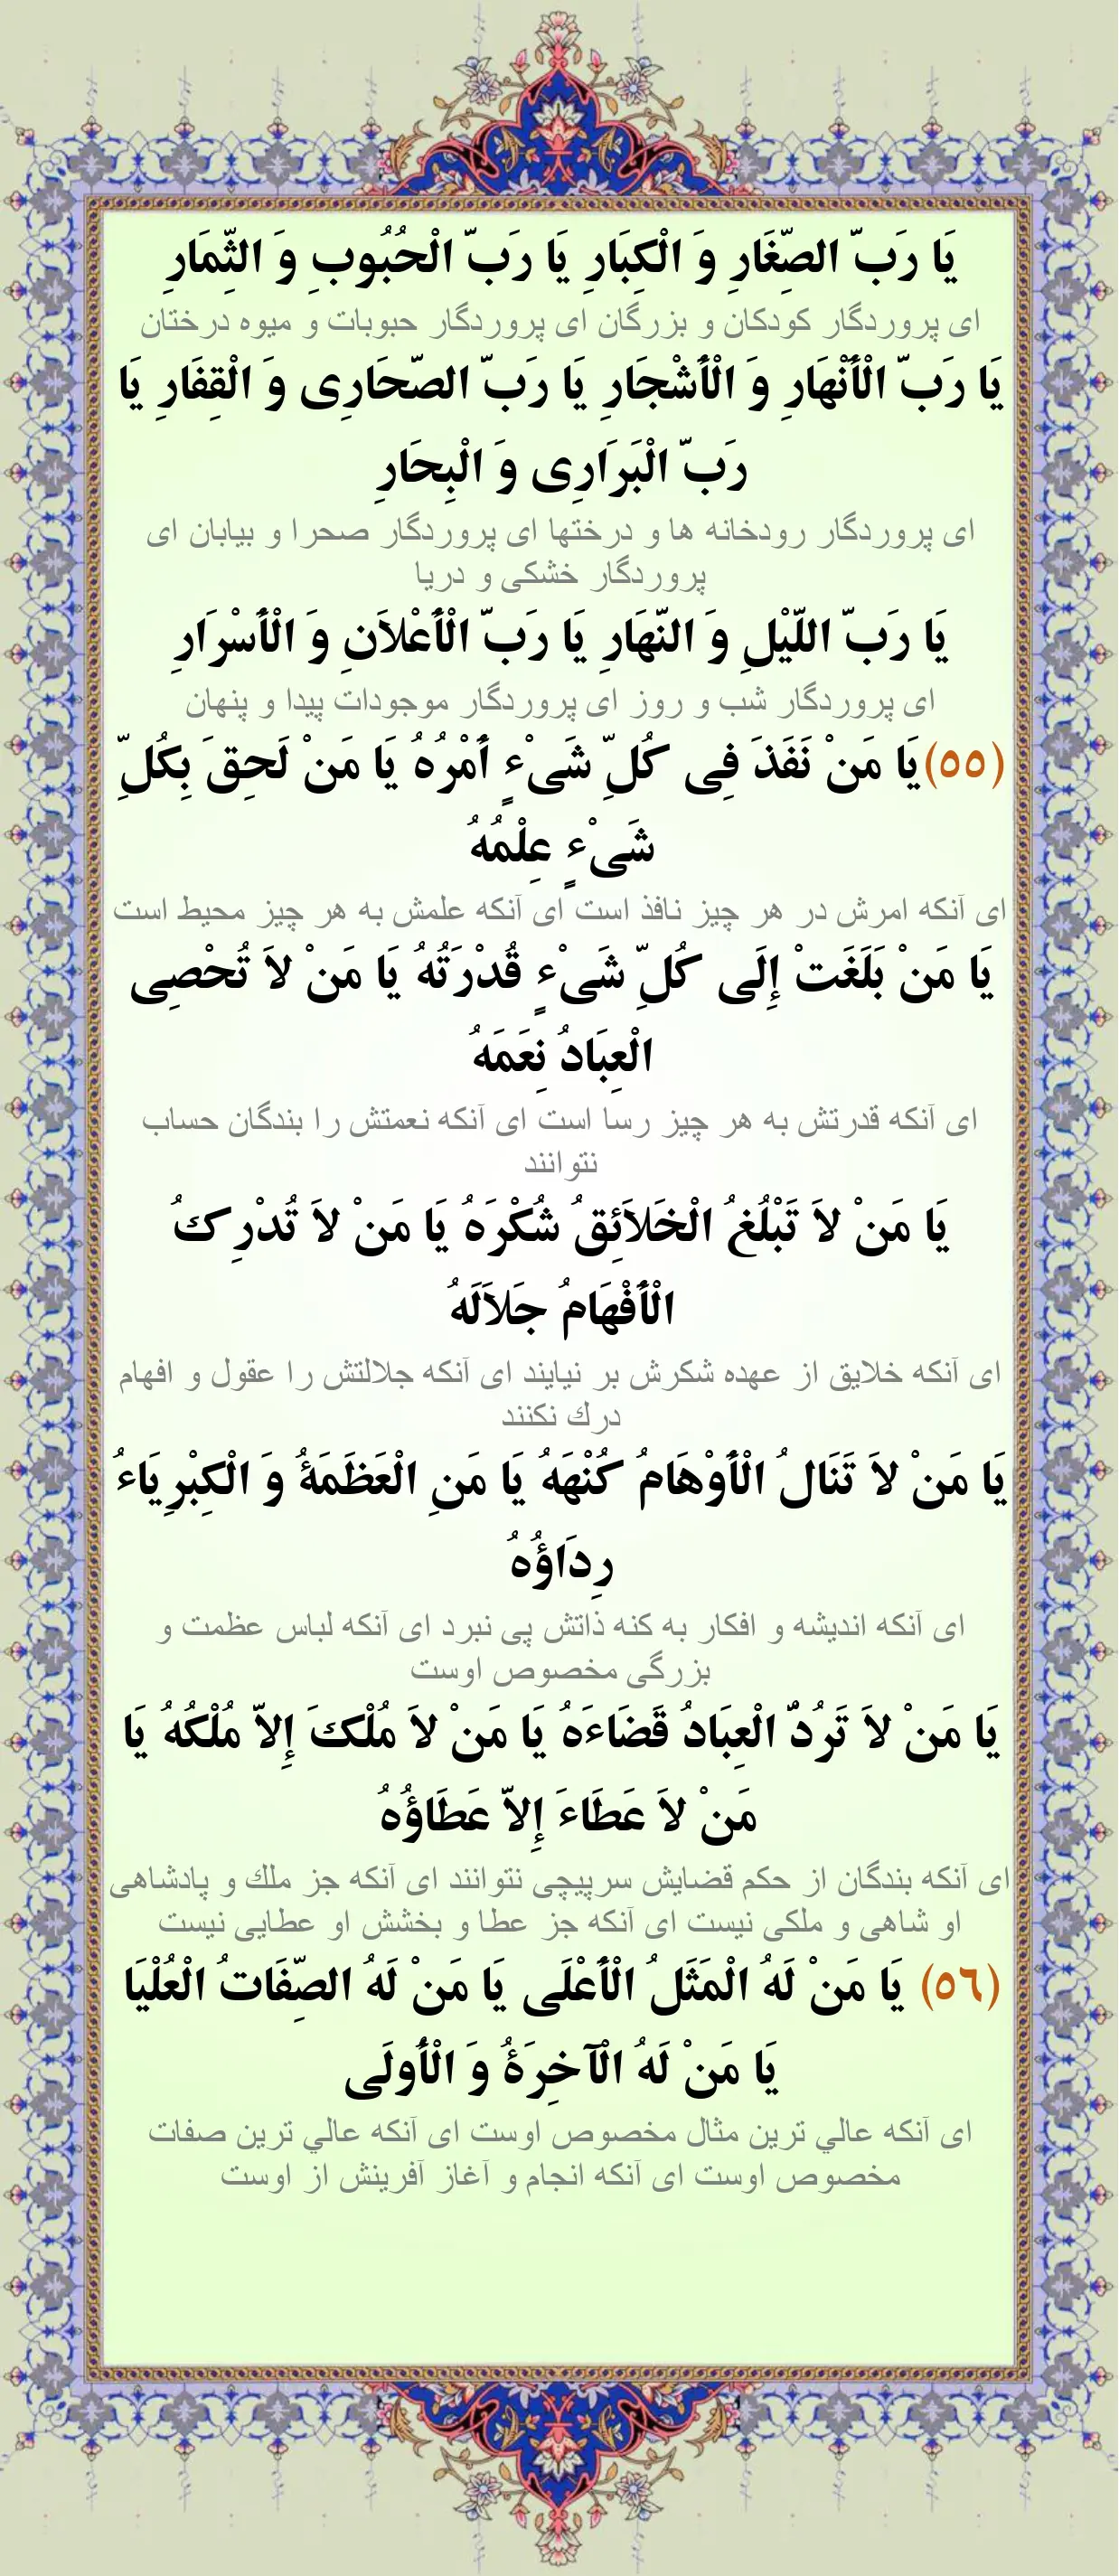 يَا رَبّ الصِّغَارِ وَ الْكِبَارِ يَا رَبّ الْحُبُوبِ وَ الثِّمَارِ
ای پروردگار کودکان و بزرگان ای پروردگار حبوبات و میوه درختان
يَا رَبّ الْأَنْهَارِ وَ الْأَشْجَارِ يَا رَبّ الصّحَارِی وَ الْقِفَارِ يَا
رَبّ الْبَرَارِی وَ الْبِحَارِ
ای پروردگار رودخانه ها و درختها ای پروردگار صحرا و بیابان ای
پروردگار خشکی و دریا
يَا رَبّ اللّيْلِ وَ النّهَارِ يَا رَبّ الْأَعْلاَنِ وَ الْأَسْرَارِ
ای پروردگار شب و روز ای پروردگار موجودات پیدا و پنهان
(٥٥)يَا مَنْ نَفَذَ فِی کُلِّ شَیْءٍ أَمْرُهُ يَا مَنْ لَحِقَ بِکُلِّ
شَیْءٍ عِلْمُهُ
ای آنکه امرش در هر چیز نافذ است ای آنکه علمش به هر چیز محیط است
يَا مَنْ بَلَغَتْ إِلَی کُلِّ شَیْءٍ قُدْرَتُهُ يَا مَنْ لاَ تُحْصِی
الْعِبَادُ نِعَمَهُ
ای آنکه قدرتش به هر چیز رسا است ای آنکه نعمتش را بندگان حساب
نتوانند
يَا مَنْ لاَ تَبْلُغُ الْخَلاَئِقُ شُکْرَهُ يَا مَنْ لاَ تُدْرِکُ
الْأَفْهَامُ جَلاَلَهُ
ای آنکه خلایق از عهده شکرش بر نیایند ای آنکه جلالتش را عقول و افهام
درك نکنند
يَا مَنْ لاَ تَنَالُ الْأَوْهَامُ کُنْهَهُ يَا مَنِ الْعَظَمَةُ وَ الْکِبْرِيَاءُ
رِدَاؤُهُ
ای آنکه اندیشه و افکار به کنه ذاتش پی نبرد ای آنکه لباس عظمت و
بزرگی مخصوص اوست
يَا مَنْ لاَ تَرُدُّ الْعِبَادُ قَضَاءَهُ يَا مَنْ لاَ مُلْکَ إِلاّ مُلْکُهُ يَا
مَنْ لاَ عَطَاءَ إِلاّ عَطَاؤُهُ
ای آنکه بندگان از حکم قضایش سرپیچی نتوانند ای آنکه جز ملك و پادشاهی
او شاهی و ملکی نیست ای آنکه جز عطا و بخشش او عطایی نیست
(٥٦) يَا مَنْ لَهُ الْمَثَلُ الْأَعْلَی يَا مَنْ لَهُ الصِّفَاتُ الْعُلْيَا
يَا مَنْ لَهُ الْآخِرَةُ وَ الْأُولَی
ای آنکه عالي ترین مثال مخصوص اوست ای آنکه عالي ترین صفات
مخصوص اوست ای آنکه انجام و آغاز آفرینش از اوست